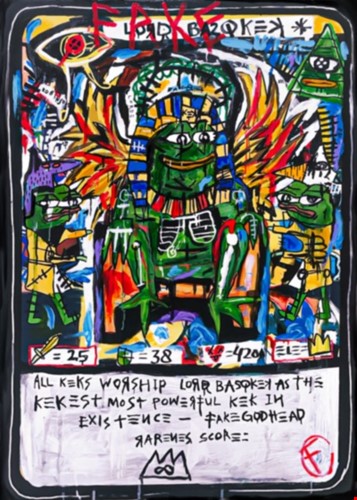 FAKE
LORD BASQKEK *
= 25
= 38
= 420
ALL KEKS WORSHIP LORD BASQKEK AS THE
KEKEST MOST POWERFUL KEK IN
EXISTENCE — FAKEGODHEAD
RARENES SCORE:
F